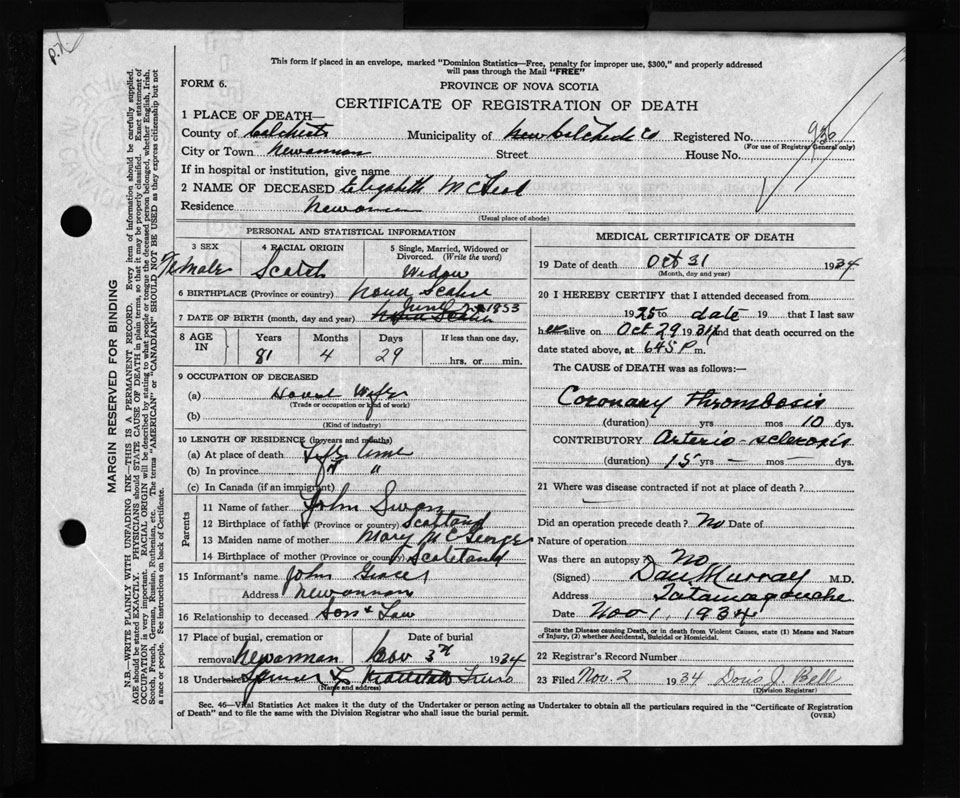 P.X
This form if placed in an envelope, marked "Dominion Statistics—Free, penalty for improper use, $300," and properly addressed
will pass through the Mail "FREE"
FORM 6.
PROVINCE OF NOVA SCOTIA
CERTIFICATE OF REGISTRATION OF DEATH
1 PLACE OF DEATH—
County of Colchester Municipality of Colchester Co Registered No. 936
(For use of Registrar General only)
City or Town Newannan Street House No.
If in hospital or institution, give name
2 NAME OF DECEASED Elizabeth
Residence Newannan
(Usual place of abode)
PERSONAL AND STATISTICAL INFORMATION
3 SEX 4 RACIAL ORIGIN 5 Single, Married, Widowed or
Divorced. (Write the word)
Female Scotch Widow
6 BIRTHPLACE (Province or country) Nova Scotia
7 DATE OF BIRTH (month, day and year) June 2 1853
8 AGE IN Years Months Days If less than one day,
81 4 29 hrs. or min.
9 OCCUPATION OF DECEASED
(a) House Wife
(Trade or occupation or kind of work)
(b)
(Kind of industry)
10 LENGTH OF RESIDENCE (in years and months)
(a) At place of death Life time
(b) In province "
(c) In Canada (if an immigrant)
Parents
11 Name of father John Swan
12 Birthplace of father (Province or country) Scotland
13 Maiden name of mother Mary McGeorge
14 Birthplace of mother (Province or country) Scotland
15 Informant's name John
Address Newannan
16 Relationship to deceased Son Law
17 Place of burial, cremation or Date of burial
removal Newannan Nov 3rd 1934
18 Undertaker Spencer Truro
(Name and address)
MEDICAL CERTIFICATE OF DEATH
19 Date of death Oct 31 1934
(Month, day and year)
20 I HEREBY CERTIFY that I attended deceased from
1925 to date 19 that I last saw
her alive on Oct 29 1934 and that death occurred on the
date stated above, at 645 P m.
The CAUSE of DEATH was as follows:—
Coronary thrombosis
(duration) yrs mos 10 dys.
CONTRIBUTORY Arterio-sclerosis
(duration) 15 yrs — mos — dys.
21 Where was disease contracted if not at place of death?
Did an operation precede death? No Date of
Nature of operation
Was there an autopsy? No
(Signed) Dan Murray M.D.
Address Tatamagouche
Date Nov 1, 1934
State the Disease causing Death, or in death from Violent Causes, state (1) Means and Nature
of Injury, (2) whether Accidental, Suicidal or Homicidal.
22 Registrar's Record Number
23 Filed Nov. 2 1934 Doris J. Bell
(Division Registrar)
Sec. 46—Vital Statistics Act makes it the duty of the Undertaker or person acting as Undertaker to obtain all the particulars required in the "Certificate of Registration
of Death" and to file the same with the Division Registrar who shall issue the burial permit.
(OVER)
MARGIN RESERVED FOR BINDING
N.B.—WRITE PLAINLY WITH UNFADING INK—THIS IS A PERMANENT RECORD. Every item of information should be carefully supplied.
AGE should be stated EXACTLY. PHYSICIANS should STATE CAUSE OF DEATH in plain terms, so that it may be properly classified. Exact statement of
OCCUPATION is very important. RACIAL ORIGIN will be described by stating to what people or tongue the deceased person belonged, whether English, Irish,
Scotch, French, German, Russian, Ruthenian, etc. The terms "AMERICAN" or "CANADIAN" SHOULD NOT BE USED as they express citizenship but not
a race or people. See instructions on back of Certificate.